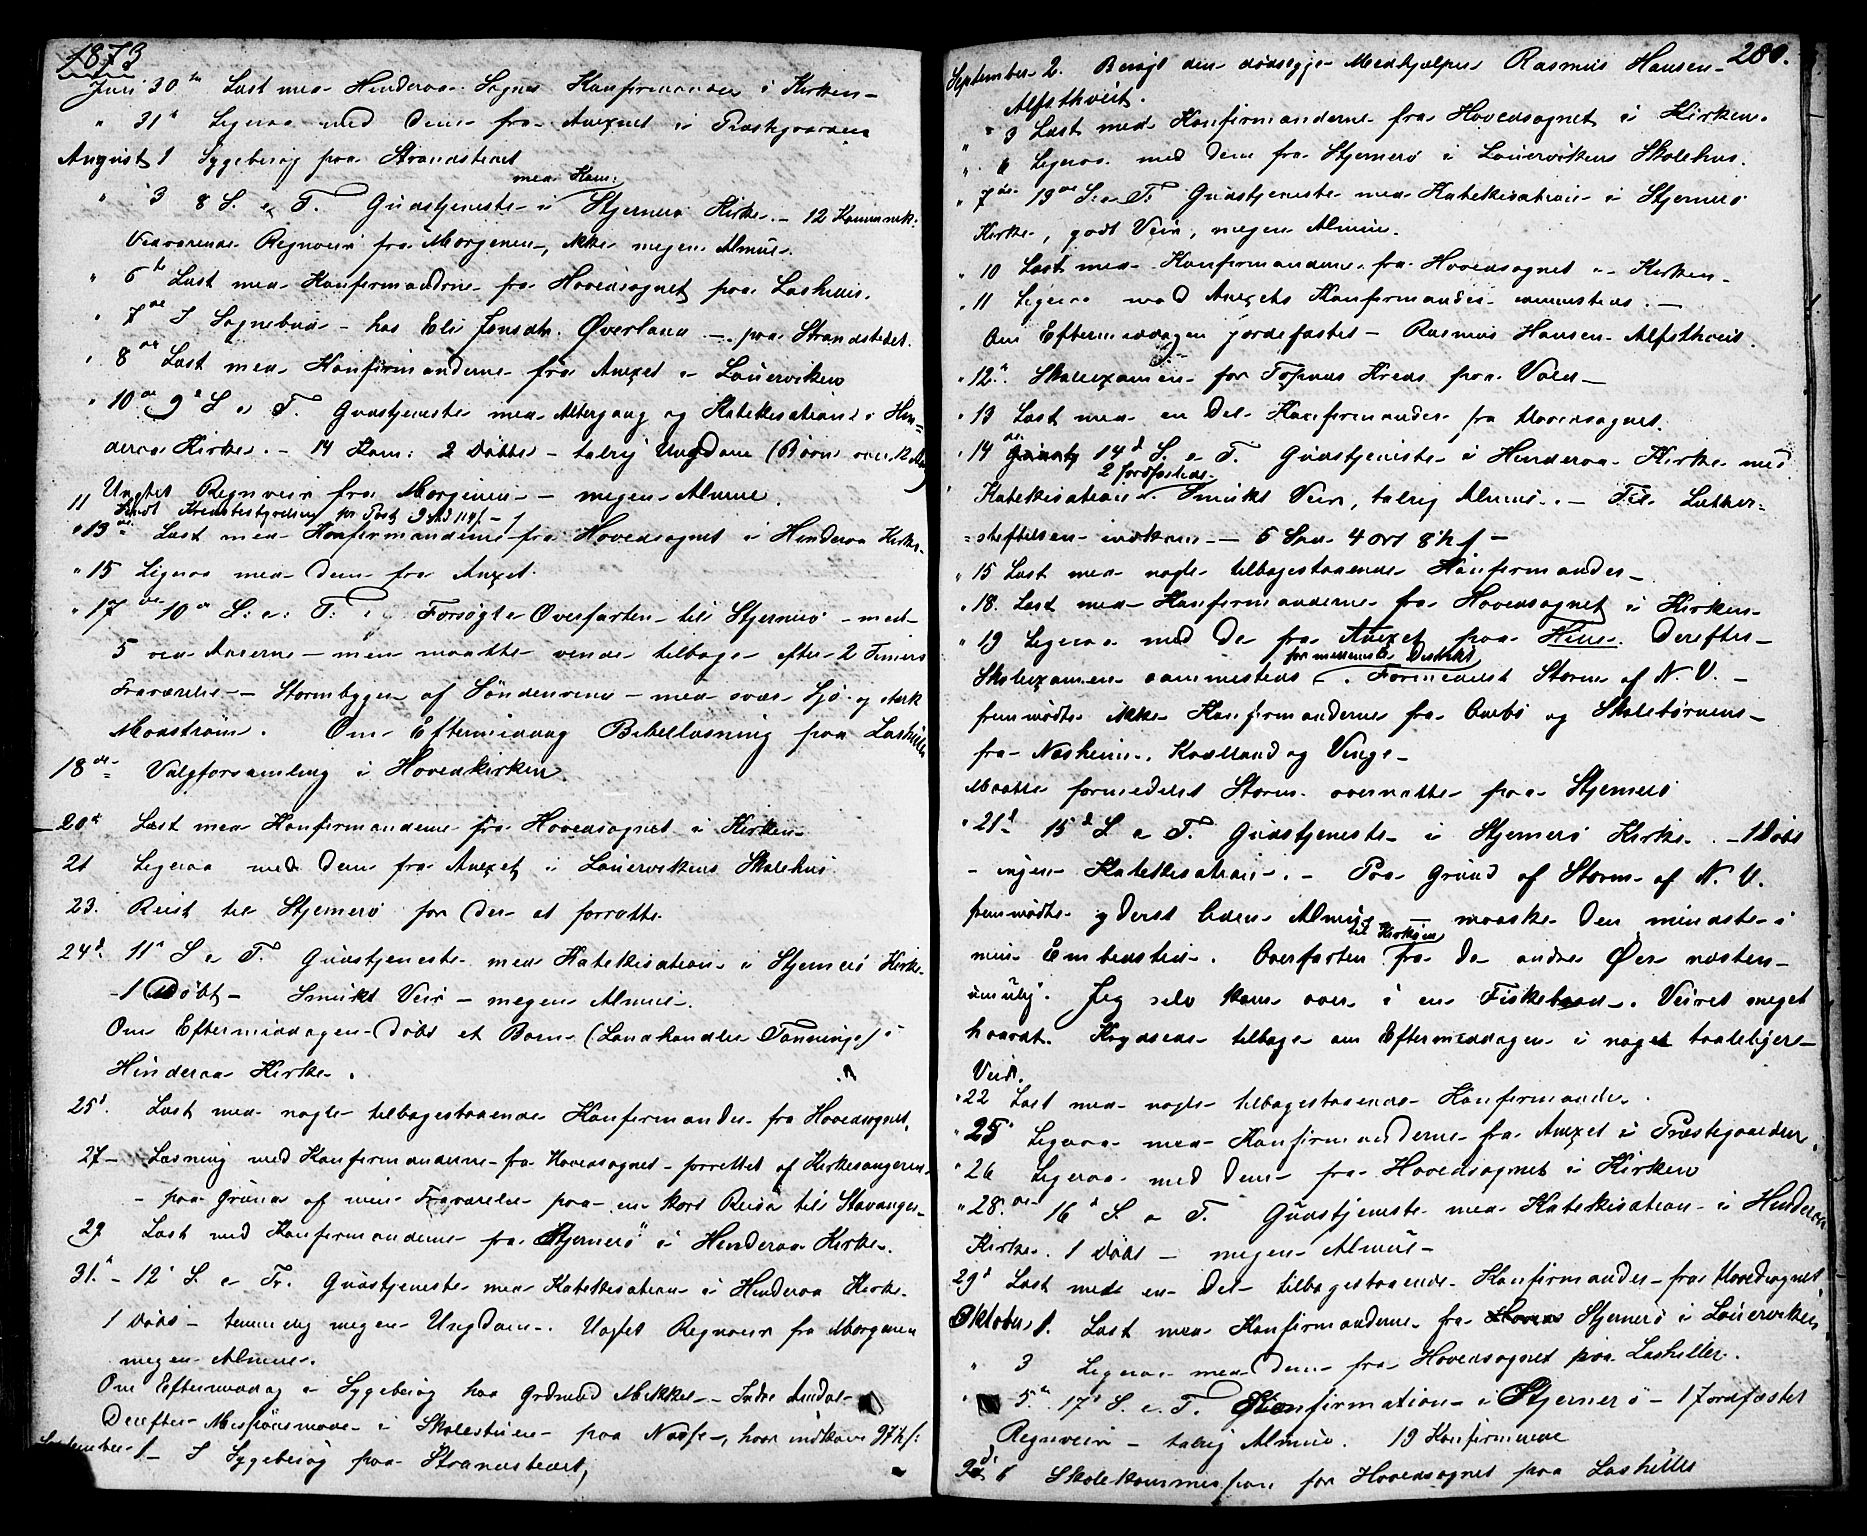 1873
Juli 30te Læst med Hinderaa Sogns Konfirmander i Kirken
" 31te Ligesaa med dem fra Anexet i Præstegaarden
August 1 Sygebesøg paa Strandstedet
med Kom:
" 3 8 S. e. T. Gudstjeneste i Stjernerø Kirke. - 12 Kommunik:
Vedvarende Regnveir fra Morgenen, ikke megen Almue.
" 6te Læst med Konfirmanderne fra Hovedsognet paa Løshelle.
" 7de I Sognebud - hos Eli Jonsdtr. Øverland - paa Strandstedet.
" 8de Læst med Konfirmanderne fra Anexet i Louerviken
" 10de 9d S. e. T. Gudstjeneste med Altergang og Katekisation i Hin-
deraa Kirke. - 14 Kom: 2 Døbte - talrig Ungdom (Børn over 12 Aar)
Ungtet Regnveir fra Morgenen - megen Almue.
11 Sendt Kredsbestyrelsen pr Post 9 Spd 114 s -
" 13de Læst med Konfirmanderne fra Hovedsognet i Hinderaa Kirke.
" 15 Ligesaa med dem fra Anexet.
" 17de 10de S: e: T: Forsøgte Overfarten til Stjernerø - med
5 ved Aarerne - men maatte vende tilbage efter 2 Timers
Fraværelse - Stormbyger af Søndenvind - med svær Sjø og stærk
Modstrøm. Om Eftermiddag Bibellæsning paa Løshelle
18de Valgforsamling i Hovedkirken
20d Læst med Konfirmanderne fra Hovedsognet i Kirken
21 Ligesaa med dem fra Anexet i Louervikens Skolehus
23. Reist til Stjernerø for der at forrette
24d. 11d S. e. T. Gudstjeneste med Katekisation i Stjernerø Kirke.
- 1 Døbt - Smukt Veir - megen Almue.
Om Eftermiddagen døbt et Barn (Landhandler Tanninge) i
Hinderaa Kirke.
25d. Læst med nogle tilbagestaaende Konfirmander fra Hovedsognet.
27 - Læsning med Konfirmanderne fra Hovedsognet forrettet af Kirkesangeren
- paa Grund af min Fraværelse paa en kort Reise til Stavanger
29 Læst med Konfirmanderne fra Stjernerø i Hinderaa Kirke.
31.d - 12d S. e. Tr. Gudstjeneste med Katekisation i Hinderaa Kirke.
1 Døbt - temmelig megen Ungdom. Ungtet Regnveir fra Morgenen
megen Almue.
Om Eftermiddag i Sygebesøg hos Grdmand Mikkel Indre Aadal
Derefter Missionsmøde i Skolestuen paa Nødse, hvor indkom 97 s:
September 1 - I Sygebesøg paa Strandstedet
280.
September 2. Besøgt den dødssyge Medhjælper Rasmus Hansen
Alfsthveit.
" 3 Læst med Konfirmanderne fra Hovedsognet i Kirken.
" 6 Ligesaa med dem fra Stjernerø i Louervikens Skolehus.
" 7de 13de S. e. T. Gudstjeneste med Katekisation i Stjernerø
Kirke, godt Veir, megen Almue.
" 10 Læst med Konfirmanderne fra Hovedsognet i Kirken
" 11 Ligesaa med Anexets Konfirmander sammesteds. -
Om Eftermiddagen jordfæstet Rasmus Hansen Alfsthveit.
" 12d. Skoleexamen for Topnæs Kreds paa Vold -
" 13 Læst med en Del Konfirmander fra Hovedsognet.
" 14de 14d S. e. T. Gudstjeneste i Hinderaa Kirke med
2 Jordfæstede
Katekisation. Smukt Veir, talrig Almue. - Til Luther-
stiftelsen indkom - 6 Spd 4 ort 8½ s -
" 15 Læst med nogle tilbagestaaende Konfirmander
" 18. Læst med Konfirmanderne fra Hovedsognet i Kirken
" 19 Ligesaa med de fra Anexet paa Helle. Derefter
for mellemste Distrikt
Skoleexamen sammesteds. Formedelst Storm af N.V. -
fremmødte ikke Konfirmanderne fra Ombø og Skolebørnene
fra Næsheim, Kvalland og Vinge -
Maatte formedelst Storm overnatte paa Stjernerø
" 21d 15d S. e. T. Gudstjeneste i Stjernerø Kirke. - 1 Døbt
- ingen Katekisation. - Paa Grund af Storm af N.V.
fremmødte yderst liden Almue - maaske den mindste i
til Kirkeøen
min Embedstid. Overfarten fra de andre Øer næsten
umulig. Jeg selv kom over i en Fiskebaad. Veiret meget
haardt. Krydsede tilbage om Eftermiddagen i noget taaleligere
Veir.
" 22 Læst med nogle tilbagestaaende Konfirmander.
" 25 Ligesaa med Konfirmanderne fra Anexet i Præstegaarden.
" 26 Ligesaa med dem fra Hovedsognet i Kirken
" 28.de 16d S. e. T. Gudstjeneste med Katekisation i Hinderaa
Kirke. 1 Døbt - megen Almue -
29d Læst med en Del tilbagestaaende Konfirmander fra Hovedsognet
Oktober 1. Læst med Konfirmanderne fra Stjernerø i Louerviken
" 3 Ligesaa med dem fra Hovedsognet paa Løsheller.
" 5te 17d S. e. T. Konfirmation i Stjernerø - 1 Jordfæstet
Regnveir - talrig Almue. 19 Konfirmerede
6 Skolekommission for Hovedsognet paa Løshelle